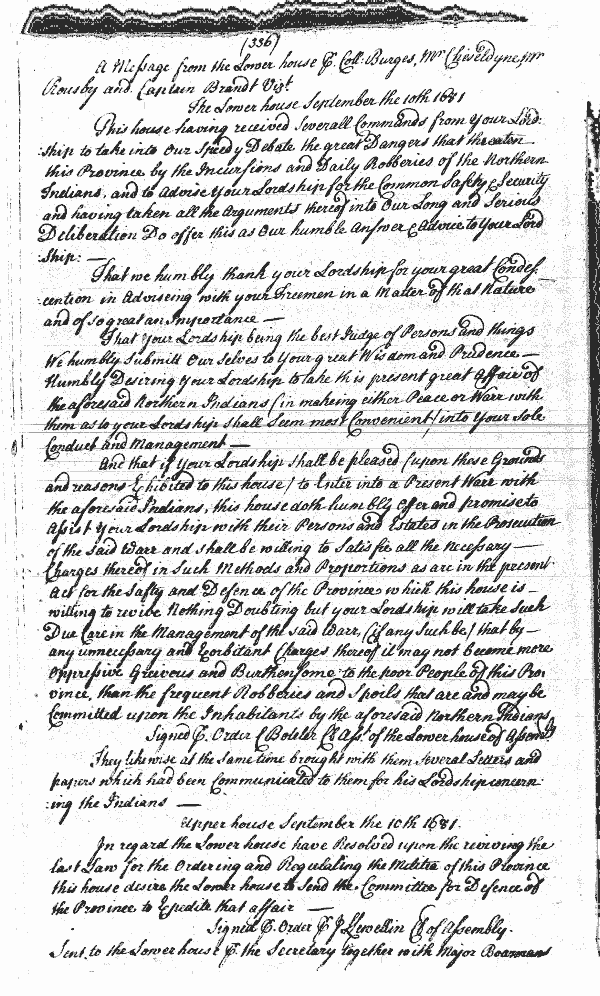 (336)
A Message from the Lower house P. Coll: Burges, Mr Cheseldyne, Mr
Rousby and Captain Brandt Vizt.
The Lower house September the 10th 1681
This house having received Severall Commands from your Lord:
:ship to take into Our Speedy Debate the great Dangers that threaten
this Province by the Incursions and Daily Robberies of the Northern
Indians, and to Advise Your Lordship for the Common Safety & Security
and having taken all the Arguments thereof into Our Long and Serious
Deliberation Do offer this as Our humble Answer & Advice to Your Lord
Ship: —
That we humbly thank your Lordship for your great Condes:
:cention in Adviseing with your Freemen in a Matter of that Nature
and of so great an Importance —
That your Lordship being the best Judge of Persons and things
We humbly Submitt Our Selves to Your great Wisdom and Prudence —
Humbly Desiring Your Lordship to take this present great Affair of
the aforesaid Northern Indians (in makeing either Peace or Warr with
them as to your Lordship shall Seem most Convenient) into Your Sole
Conduct and Management —
And that if your Lordship shall be pleased (upon these Grounds
and reasons Exhibited to this house) to Enter into a Present Warr with
the aforesaid Indians, this house doth humbly offer and promise to
Assist your Lordship with their Persons and Estates in the Prosecution
of the Said Warr and shall be willing to Satisfie all the necessary —
Charges thereof in Such Methods and Proportions as are in the present
Act for the Safty and Defence of the Province which this house is —
willing to revive Nothing Doubting but your Lordship will take Such
Due Care in the Management of the said Warr, (if any Such be) that by —
any unnecessary and Exorbitant Charges thereof it may not become more
Oppressive Greivous and Burthensome to the poor People of this Pro:
vince, than the frequent Robberies and Spoils that are and may be
Committed upon the Inhabitants by the aforesaid Northern Indians
Signed P. Order C Boteler Cl Ass. of the Lower house of Assembly
They likewise at the same time brought with them Several Letters and
papers which had been Communicated to them for his Lordship concern:
:ing the Indians —
Upper house September the 10th 1681.
In regard the Lower house have Resolved upon the reviving the
last Law for the Ordering and Regulating the Militia of this Province
this house desire the Lower house to Send the Committee for Defence of
the Province to Expedite that affair —
Signed P. Order P J Llewellin Cl of Assembly.
Sent to the Lower house P. the Secretary together with Major Boarmans